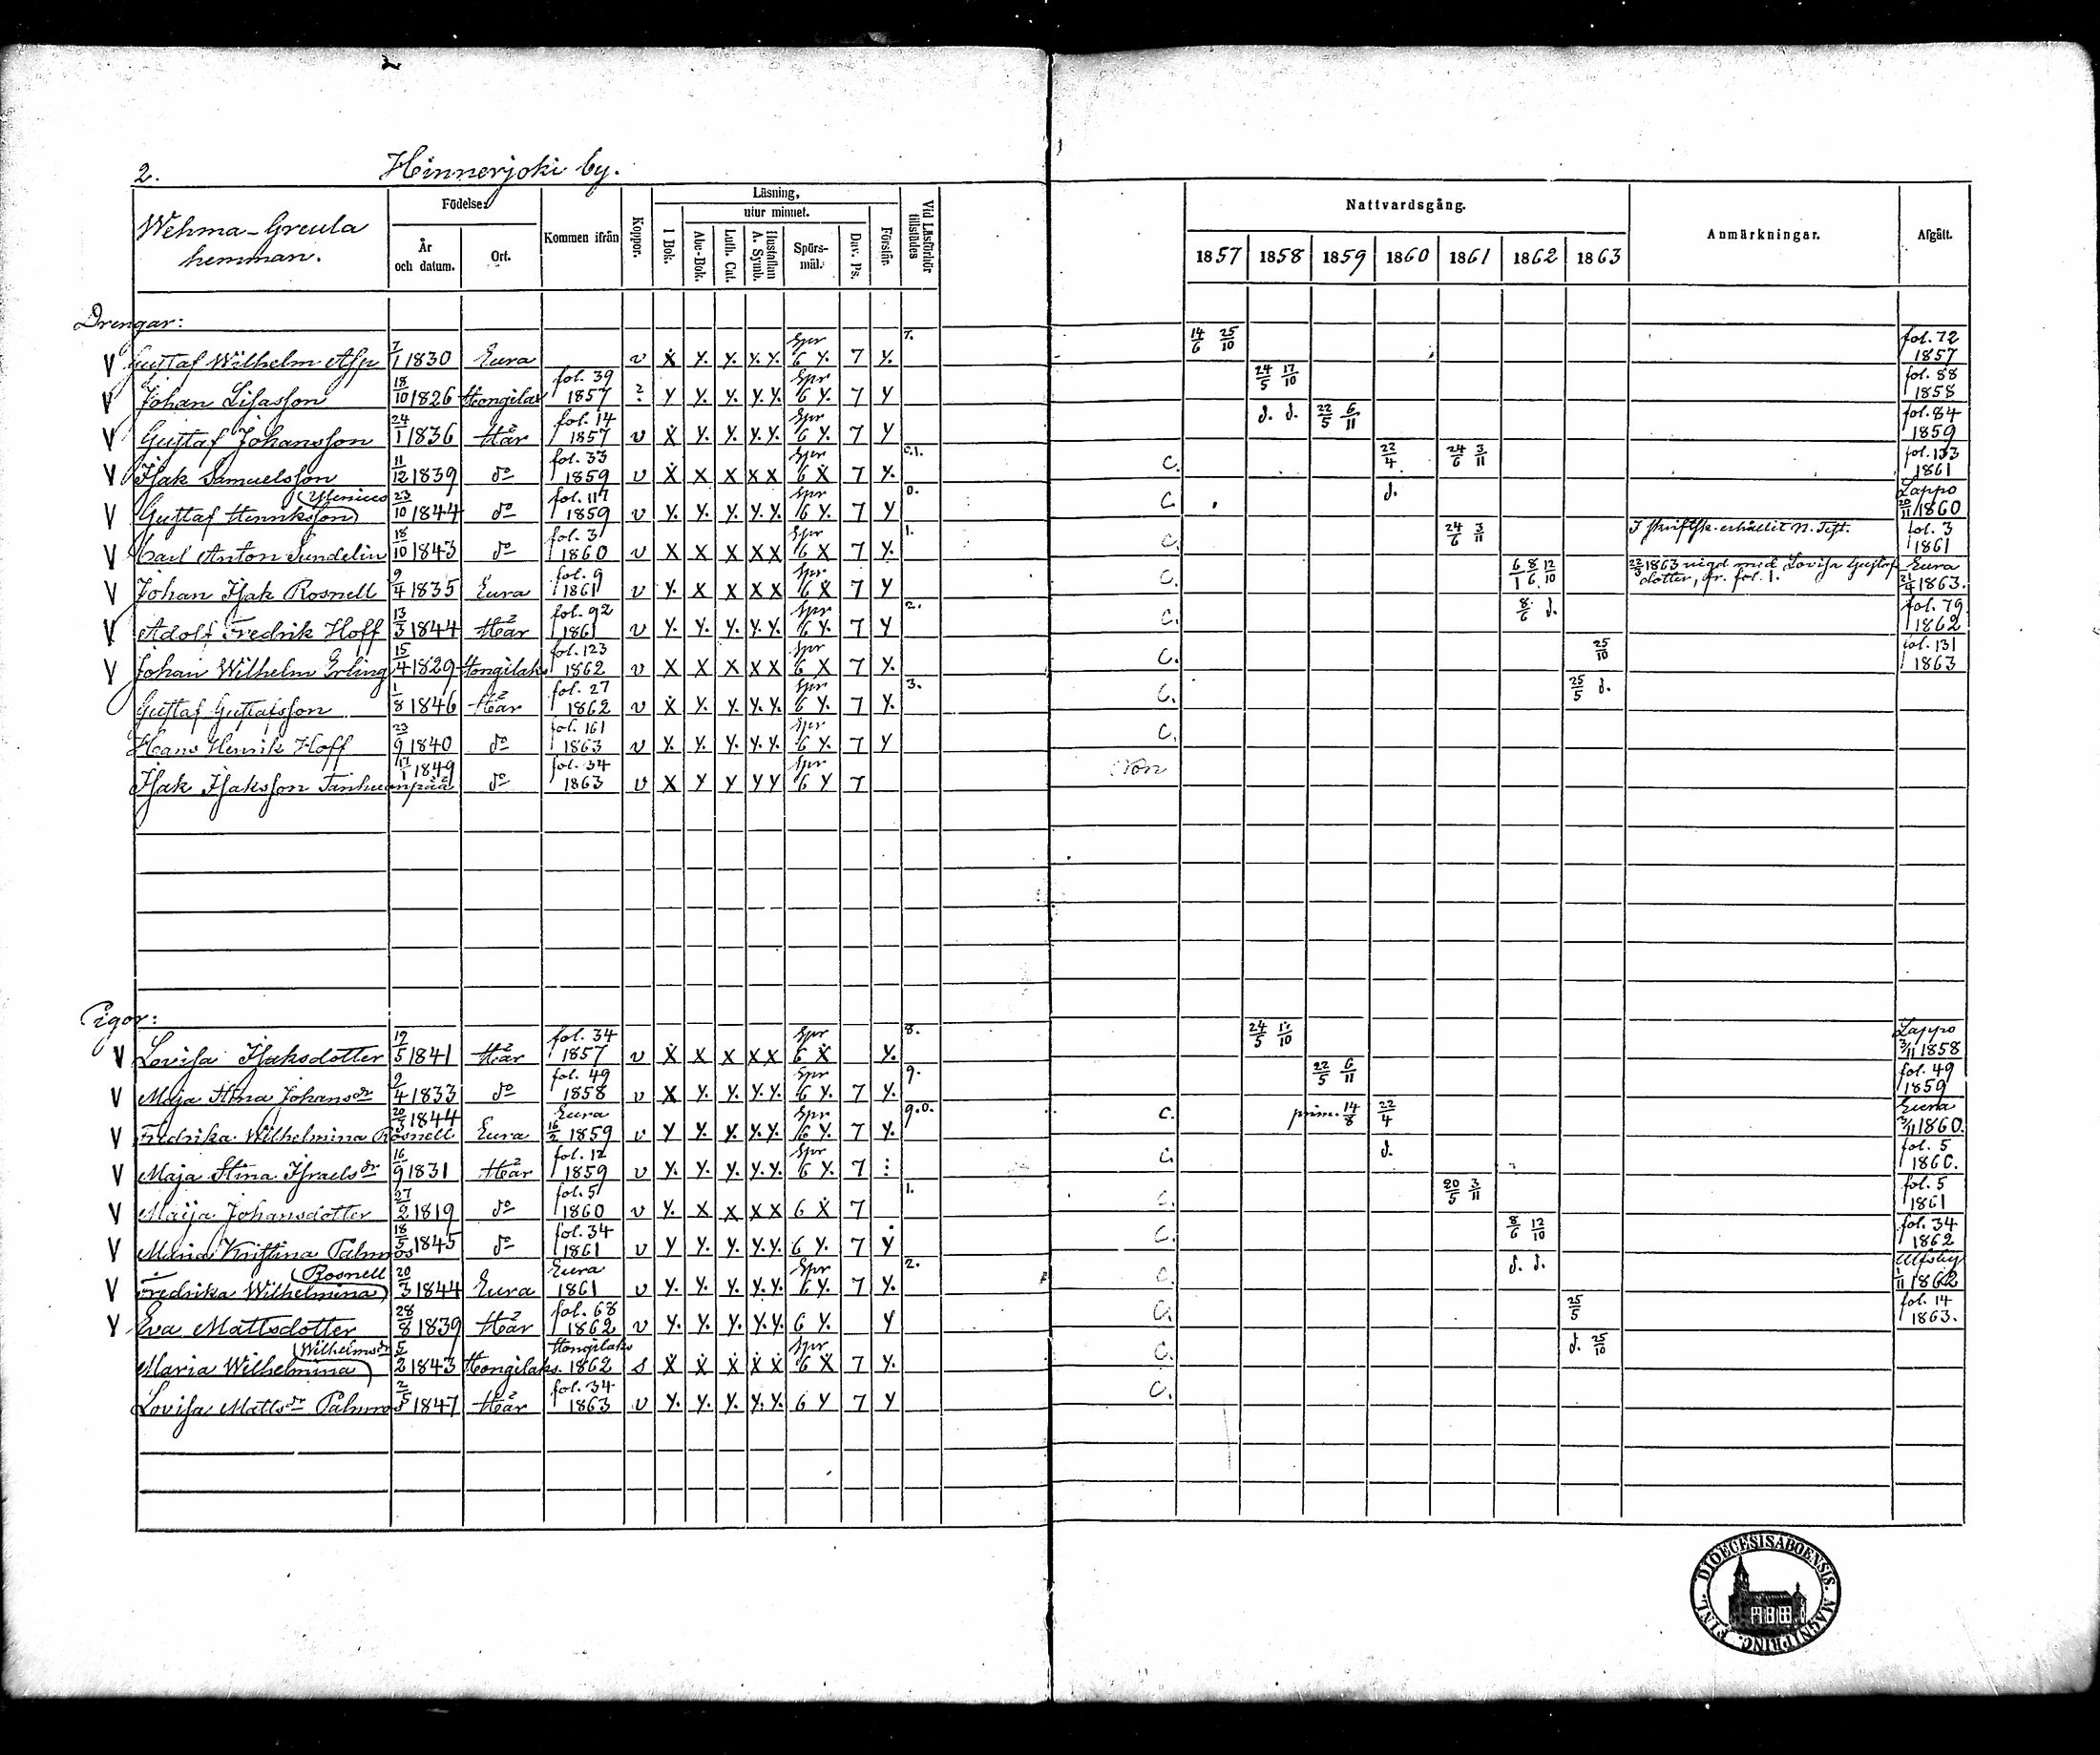 2. Hinnerjoki by.
Wehma-Greula hemman.
Födelse:
År och datum.
Ort.
Kommen ifrån
Koppor.
Läsning,
I Bok.
utur minnet.
Abc-Bok.
Luth. Cat.
Hustaflan A. Symb.
Spörs-mål.
Dav. Ps.
Förstår.
Vid Läsförhör tillstädes
Nattvardsgång.
1857 1858 1859 1860 1861 1862 1863
Anmärkningar.
Afgått.
Drengar:
V Gustaf Wilhelm 7/1 1830 Eura v X y. y. y. y. Spr 6 y. 7 y. 7. 14/6 25/10 fol. 72 1857
V Johan Lisasson 18/10 1826 Hongilax fol. 39 1857 y y. y. y. y. Spr 6 y. 7 y 24/5 17/10 fol. 88 1858
V Gustaf Johansson 24/1 1836 Här fol. 14 1857 v X y. y. y. y. Spr 6 y. 7 y d. d. 22/5 6/11 fol. 84 1859
V Isak Samuelsson 11/12 1839 do fol. 33 1859 v X X X X X Spr 6 X 7 y. 0.1. C. 22/4 24/6 3/11 fol. 133 1861
V Gustaf Henriksson 23/10 1844 do fol. 117 1859 v y. y. y. y. y. Spr 6 y. 7 y 0. C. d. Lappo 1860
V Carl Anton Sundelin 18/10 1843 do fol. 3 1860 v X X X X X Spr 6 X 7 y. 1. C. 24/6 3/11 I skriftsk. erhållit N. Test. fol. 3 1861
V Johan Isak Rosnell 9/4 1835 Eura fol. 9 1861 v y. X X X X Spr 6 X 7 y C. 6/1 8/6 12/10 1863 vigd med Lovisa Gustafs dotter, fr. fol. 1. Eura 21/4 1863.
V Adolf Fredrik Hoff 13/3 1844 Här fol. 92 1861 v y. y. y. y. y. Spr 6 y. 7 y 2. C. 8/6 d. fol. 79 1862
V Johan Wilhelm Erling 15/4 1829 Hongilaks fol. 123 1862 v X X X X X Spr 6 X 7 y. C. 25/10 fol. 131 1863
Gustaf Gustafsson 1/8 1846 Här fol. 27 1862 v X y. y. y. y. Spr 6 y. 7 y. 3. C. 25/5 d.
Hans Henrik Hoff 23/9 1840 do fol. 161 1863 v y. y. y. y. y. Spr 6 y. 7 y C.
Isak Isaksson Tanhuanpää 17/1 1849 do fol. 34 1863 v X y y y y Spr 6 y 7 Non
Pigor:
V Lovisa Isaksdotter 19/5 1841 Här fol. 34 1857 v X X X X X Spr 6 X y. 8. 24/5 17/10 Lappo 3/11 1858
V Maja Stina Johansdr 9/4 1833 do fol. 49 1858 v X y. y. y. y. Spr 6 y. 7 y. 9. 22/5 6/11 fol. 49 1859
V Fredrika Wilhelmina Rosnell 20/3 1844 Eura Eura 16/2 1859 v y y. y. y. y. Spr 6 y. 7 y. 9.0. C. prim. 14/8 22/4 Eura 3/11 1860.
V Maja Stina Israelsdr 16/9 1831 Här fol. 12 1859 v y. y. y. y. y. Spr 6 y. 7 : C. d. fol. 5 1860.
V Maija Johansdotter 27/2 1819 do fol. 5 1860 v y. X X X X 6 X 7 1. C. 20/5 3/11 fol. 5 1861
V Maria Kristina Palmros 18/5 1845 do fol. 34 1861 v y y. y. y. y. 6 y. 7 y C. 8/6 12/10 fol. 34 1862
V Fredrika Wilhelmina Rosnell 20/3 1844 Eura Eura 1861 v y. y. y. y. y. Spr 6 y. 7 y. 2. C. d. d. Ulfsby 1/11 1862
V Eva Mattsdotter 28/8 1839 Här fol. 68 1862 v y. y. y. y. y. 6 y. y C. 25/5 fol. 14 1863.
Maria Wilhelmina Wilhelmsdr 5/2 1843 Hongilaks. Hongilaks 1862 s X X X X X Spr 6 X 7 y. C. d. 25/10
Lovisa Mattsdr Palmros 2/5 1847 Här fol. 34 1863 v y. y. y. y. y. 6 y 7 y C.
DIOECESIS ABOENSIS. MAGNI PRINC. FINL.